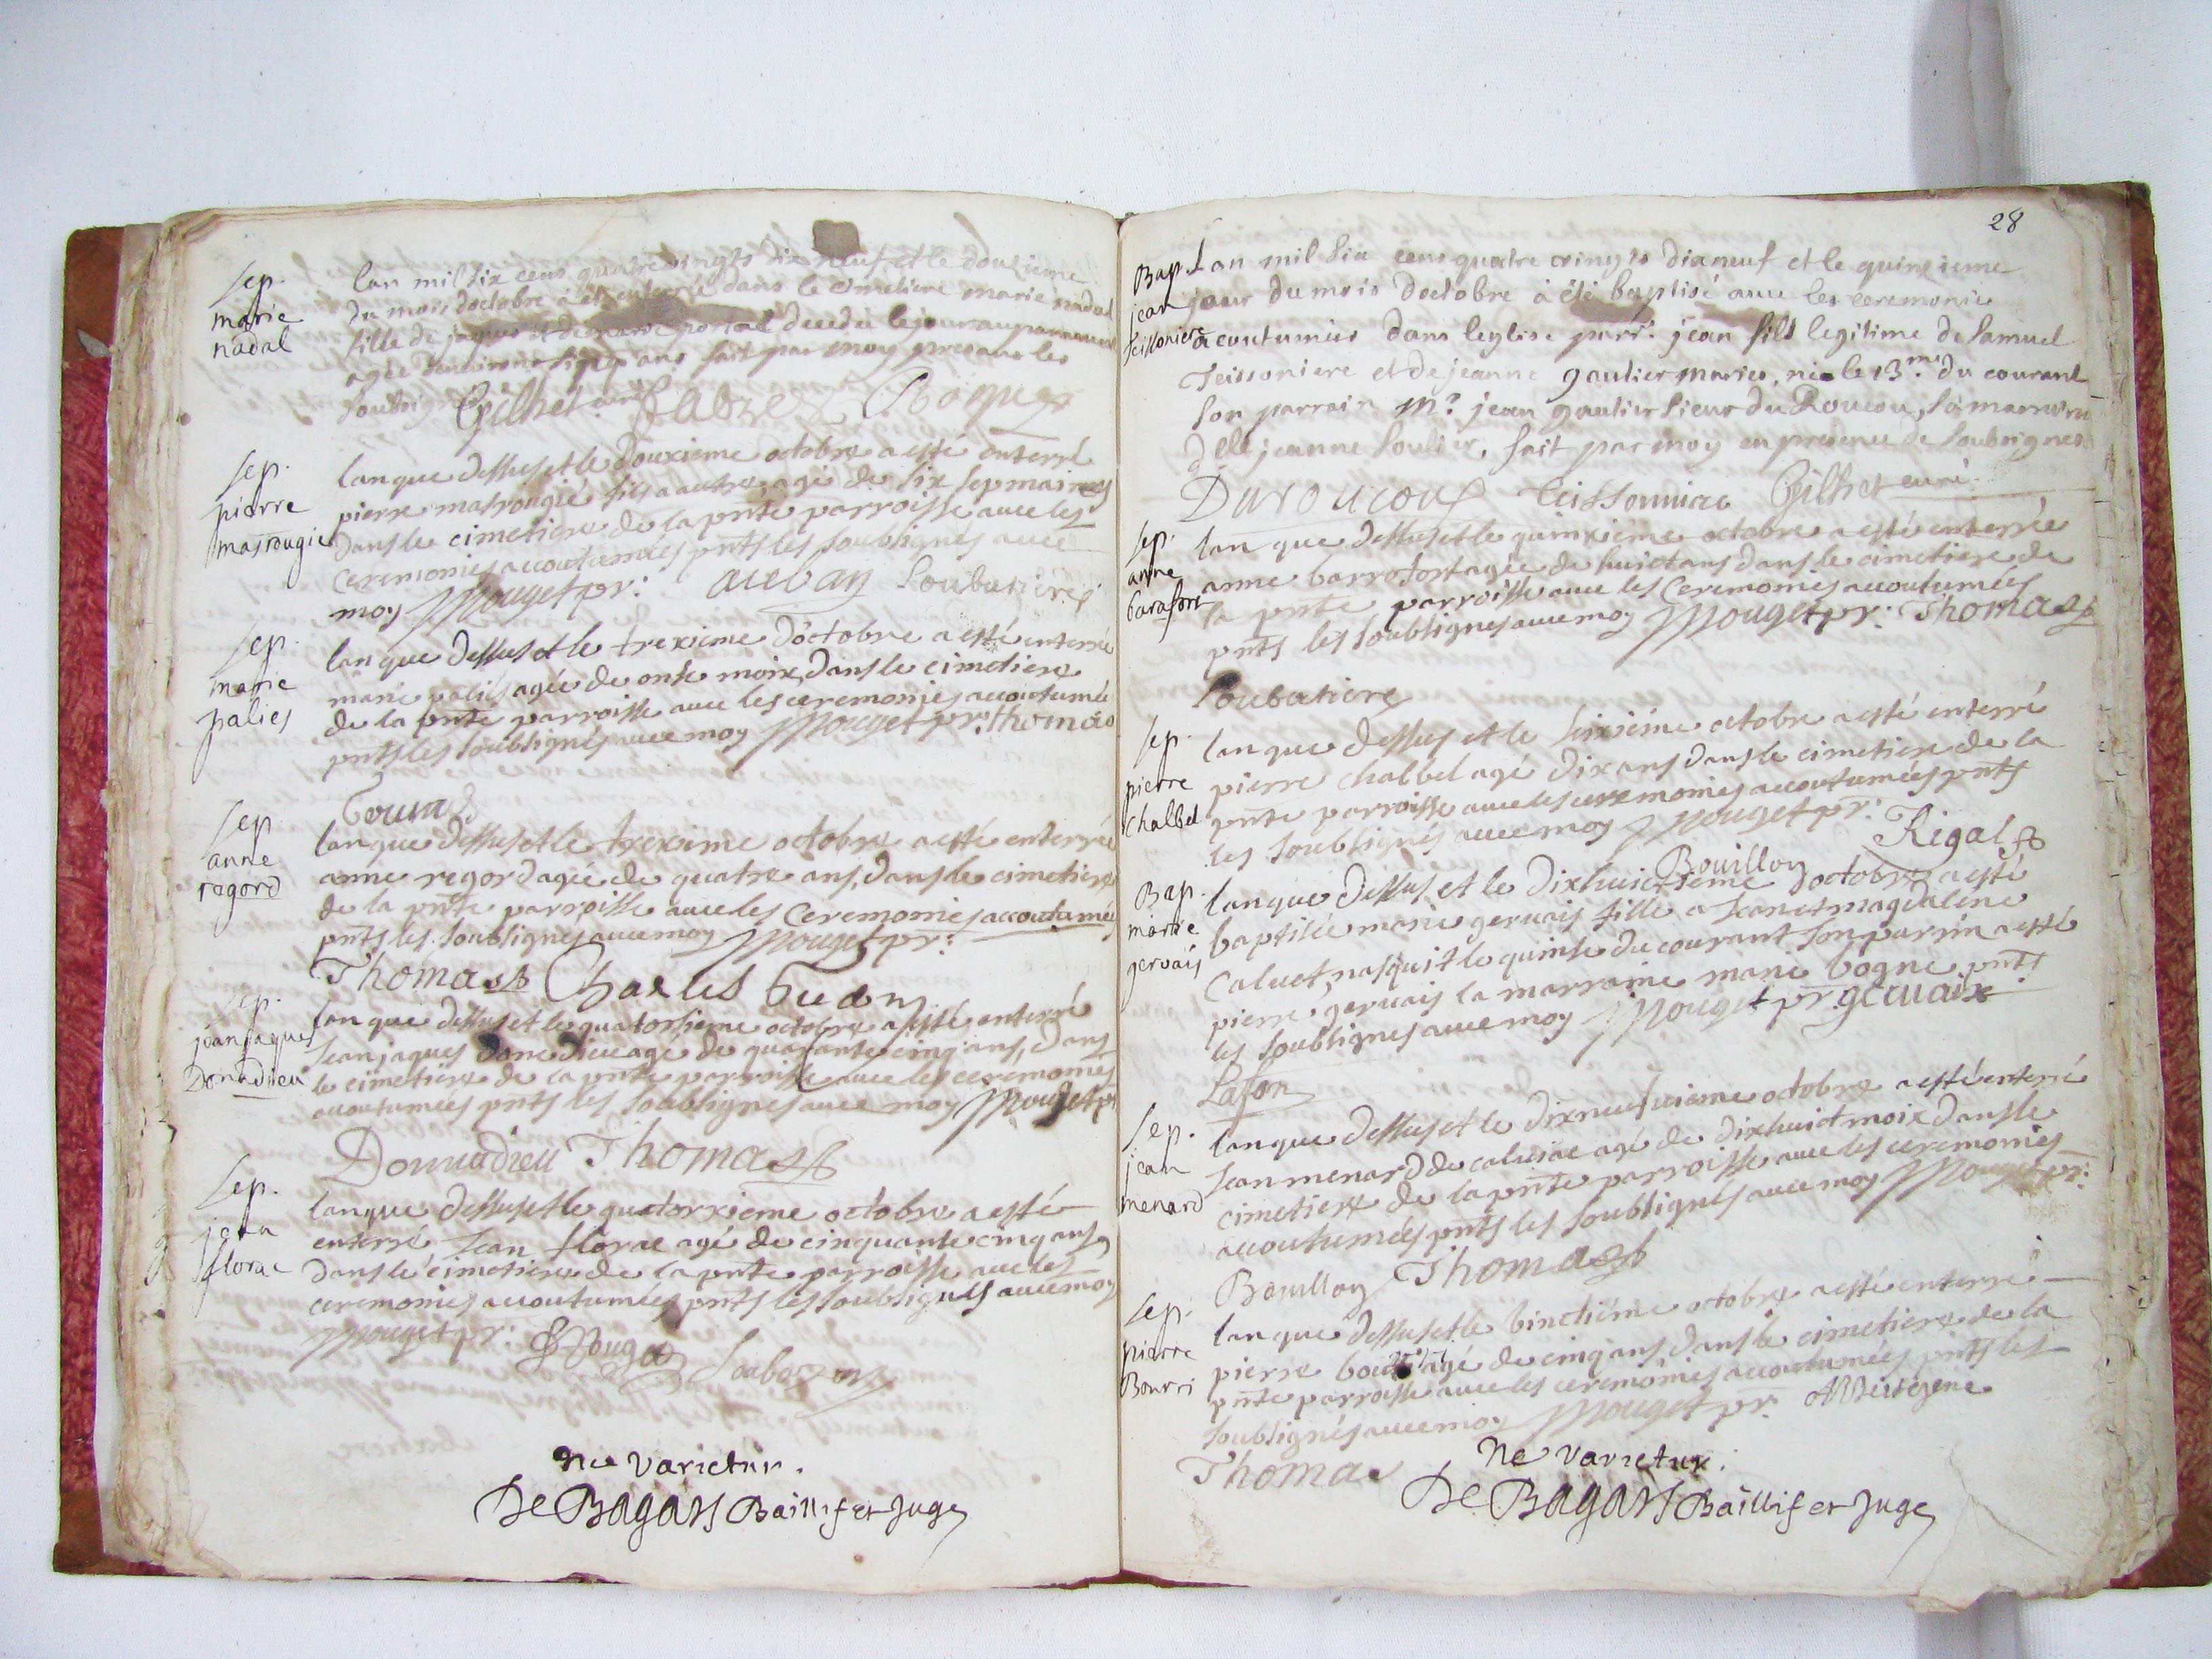 Sep.
marie
nadal
lan mil six cens quatre vingts dix neuf et le douzieme
du mois doctobre à été enterrée dans le cimetiere marie nadal
fille de jaques et de marie portal decedée le jour auparavant
agée denviron ans fait par moy presans les
soubsignés Gilhet curé Fabre Roques
Sep.
pierre
masrougié
lan que dessus et le douxieme octobre a esté enterré
pierre masrougié fils a autre, agé de six sepmaines
dans le cimetiere de la pnte parroisse avec les
ceremonies accoutumées pnts les soubsignés avec
moy Mouget pr: auban Soubatiere
Sep.
marie
palies
lan que dessus et le trexieme d'octobre a esté enterrée
marie paliés agée de onse moix, dans le cimetiere
de la pnte parroisse avec les ceremonies accoutumée
pnts les soubsignés avec moy Mouget pr: thomas
Sep
anne
regord
lan que dessus et le trexieme octobre a esté enterrée
anne regord agée de quatre ans, dans le cimetiere
de la pnte parroisse avec les ceremonies accoutumé
pnts les soubsignes avec moy Mouget pr:
Thomas Charles
Sep.
jean jaques
Donadieu
lan que dessus et le quatorsieme octobre a esté enterré
Jean jaques Donedieu agé de quarante cinq ans, dans
le cimetiere de la pnte parroisse avec les ceremonies
accoutumées pnts les soubsignes avec moy Mouget pr
Donnadieu Thomas
Sep.
jean
florac
lan que dessus et le quatorxieme octobre a esté
enterré Jean florac agé de cinquante cinq ans
dans le cimetiere de la pnte parroisse avec les
ceremonies accoutumées pnts les soubsignés avec moy
Mouget pr:
Ne Varietur.
De Bagars Baillif et Juge
28
Bap.
jean
teissoniere
Lan mil six cens quatre vingts dix neuf et le quinzieme
jour du mois doctobre à été baptisé avec les ceremonies
acoutumées dans leglise parr: jean fils legitime de Samuel
Teissoniere et de jeanne gautier mariés, né le 13.me du courant
son parrain mr. jean gautier sieur du Roucou, sa marreine
dlle jeanne soulier, fait par moy en presence de soubsignes
Duroucous Teissonniere Gilhet curé
Sep.
anne
barafort
lan que dessus et le quinxiéme octobre a esté enterrée
anne barrofort agée de huict ans dans le cimetiere de
la pnte parroisse avec les ceremonies accoutumées
pnts les soubsignes avec moy Mouget pr: Thomas
Soubatiere
Sep.
pierre
chalbel
lan que dessus et le seixiéme octobre a esté enterré
pierre chalbel agé dix ans dans le cimetiere de la
pnte parroisse avec les ceremonies accoutumées pnts
les soubsignés avec moy Mouget pr:
Bouillon Rigal
Bap.
marie
gervais
lan que dessus et le dixhuictieme doctobre a esté
baptisée marie gervais fille a Jean et magdalene
Calvet, nasquit le quinse du courant son parrin a esté
pierre gervais la marraine marie bogne pnts
les soubsignes avec moy Mouget pr. gervaix
Lafon
Sep.
jean
menard
lan que dessus et le dixneufvieme octobre a esté enterré
Jean menard de calvise agé de dixhuict moix dans le
cimetiere de la pnte parroisse avec les ceremonies
accoutumées pnts les soubsignés avec moy Mouget pr:
Bouillon Thomas
Sep.
pierre
Bourri
lan que dessus et le vinctiéme octobre a esté enterré
pierre agé de cinq ans dans le cimetiere de la
pnte parroisse avec les ceremonies accoutumées pnts les
soubsignés avec moy Mouget pr.
Thomas
Ne Varietur.
De Bagars Baillif et Juge